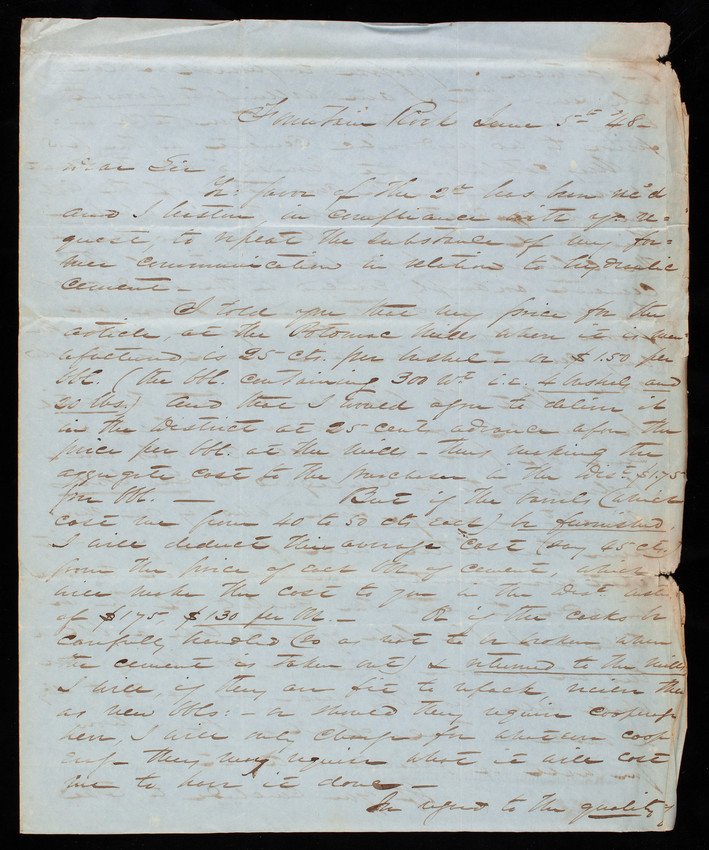 Fountain Rock June 5th '48 -
Dear Sir
Yr favor of the 2d has been rec'd
and I hasten, in compliance with yr. re=
quest, to repeat the substance of my for=
mer communication in relation to hydraulic
cement -
I told you that my price for the
article, at the Potomac Mills where it is man
ufactured is 35 cts. per bushel - or $1.50 per
bbl. (the bbl. containing 300 wt i.e. 4 bushels and
20 lbs.) and that I would agree to deliver it
in the District at 25 cents advance upon the
price per bbl. at the mill - thus making the
aggregate cost to the purchaser in the Dist. $1.75
per bbl. - But if the barrels (which
cost me from 40 to 50 cts. each) be furnished,
I will deduct their average cost (say 45 ct.
from the price of each bbl. of cement, which
will make the cost to you in the Dist. inst.
of $1.75, $1.30 per bbl. - Or if the casks be
carefully handled (so as not to be broken when
the cement is taken out) & returned to the mills
I will, if they are fit to repack, receive them
as new bbls: - or should they require cooperage
here, I will only charge for whatever coop
erage they may require what it will cost
me to have it done -
In regard to the quality of